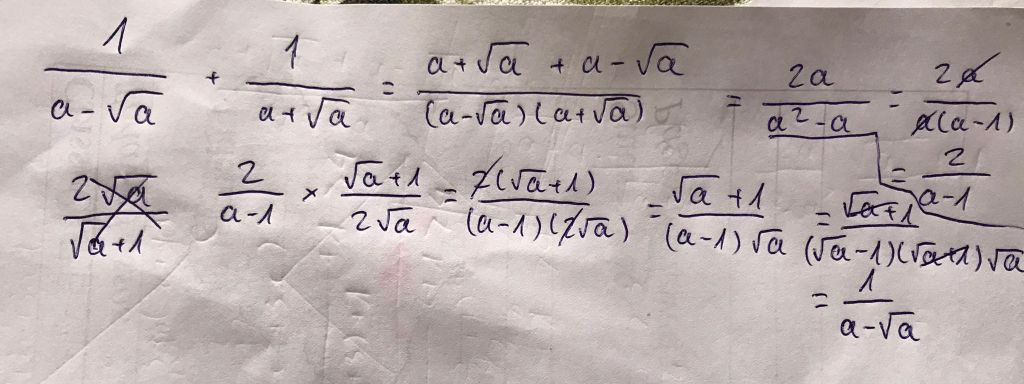 1/(a-√a) + 1/(a+√a) = (a+√a + a-√a)/((a-√a)(a+√a)) = 2a/(a²-a) = 2a/(a(a-1))
= 2/(a-1)
2√a/(√a+1)
2/(a-1) × (√a+1)/(2√a) = 2(√a+1)/((a-1)(2√a)) = (√a+1)/((a-1)√a) = (√a+1)/((√a-1)(√a+1)√a)
= 1/(a-√a)